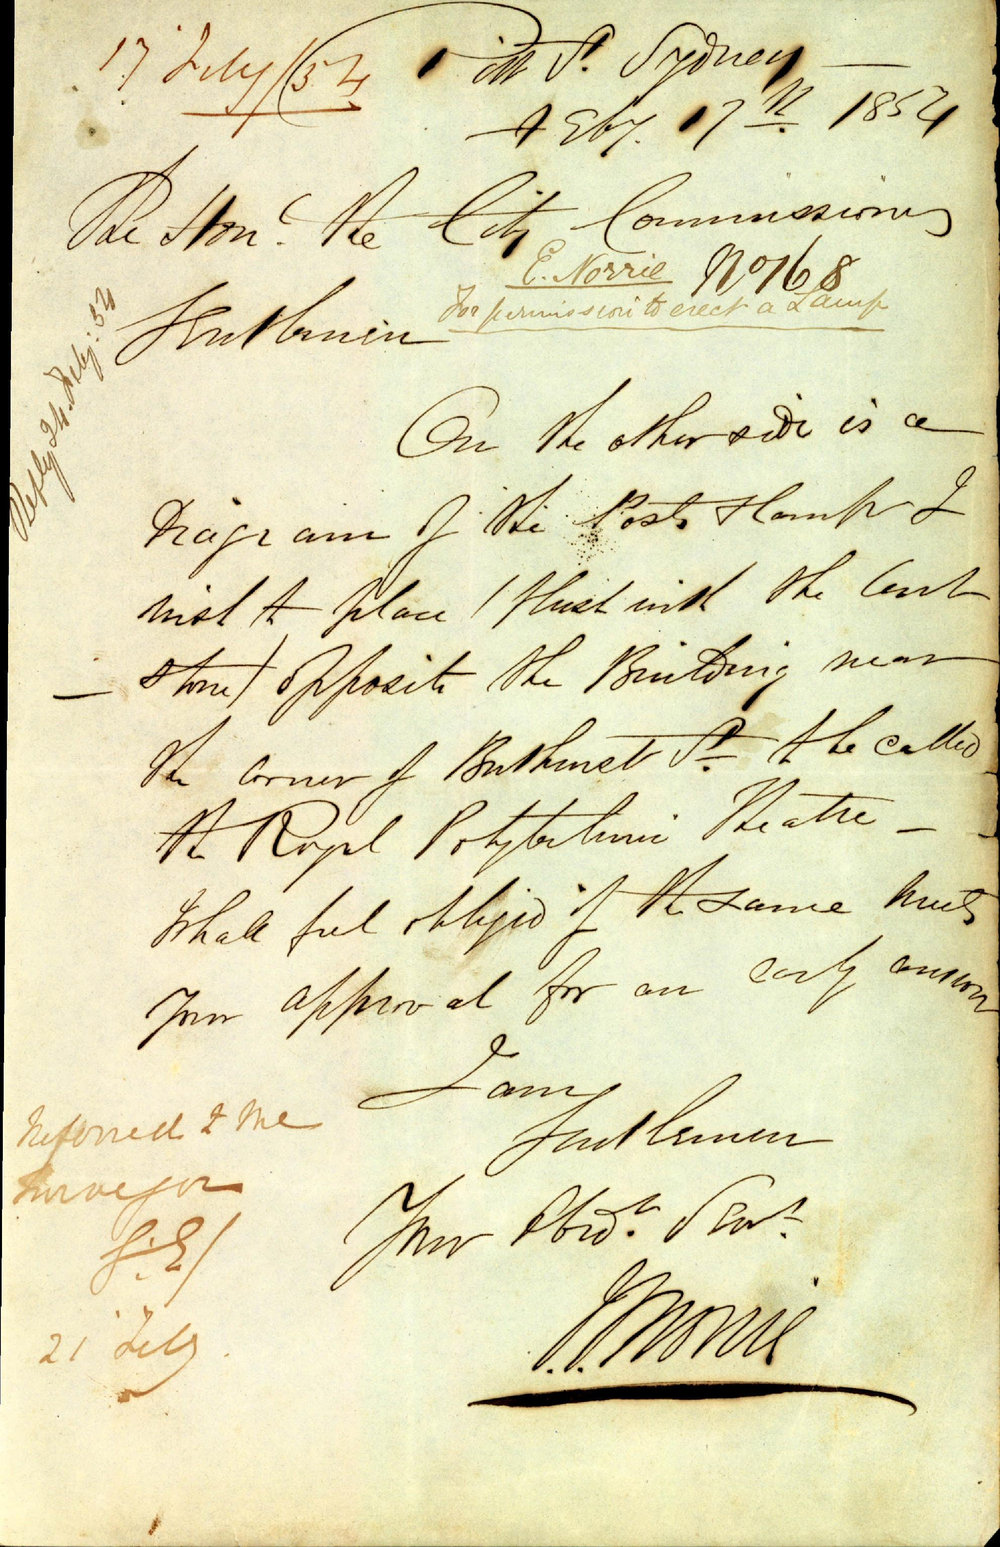 17 Feby /54
Pitt St. Sydney
Feby. 17th 1854
The Honc. the City Commissioners
E. Norrie No 168
For permission to erect a Lamp
Gentlemen
Reply 24. Feby: 54
On the other side is a
Diagram of the Post & Lamp I
wish to place (flush with the Curb
stone) opposite the Building near
the corner of Bathurst St. to be called
the Royal Polytechnic Theatre —
Shall feel obliged if the same meets
your approval for an early answer
I am
Gentlemen
Your Obedt. Servt.
Norrie
Referred to the
Surveyor
21 Feby.